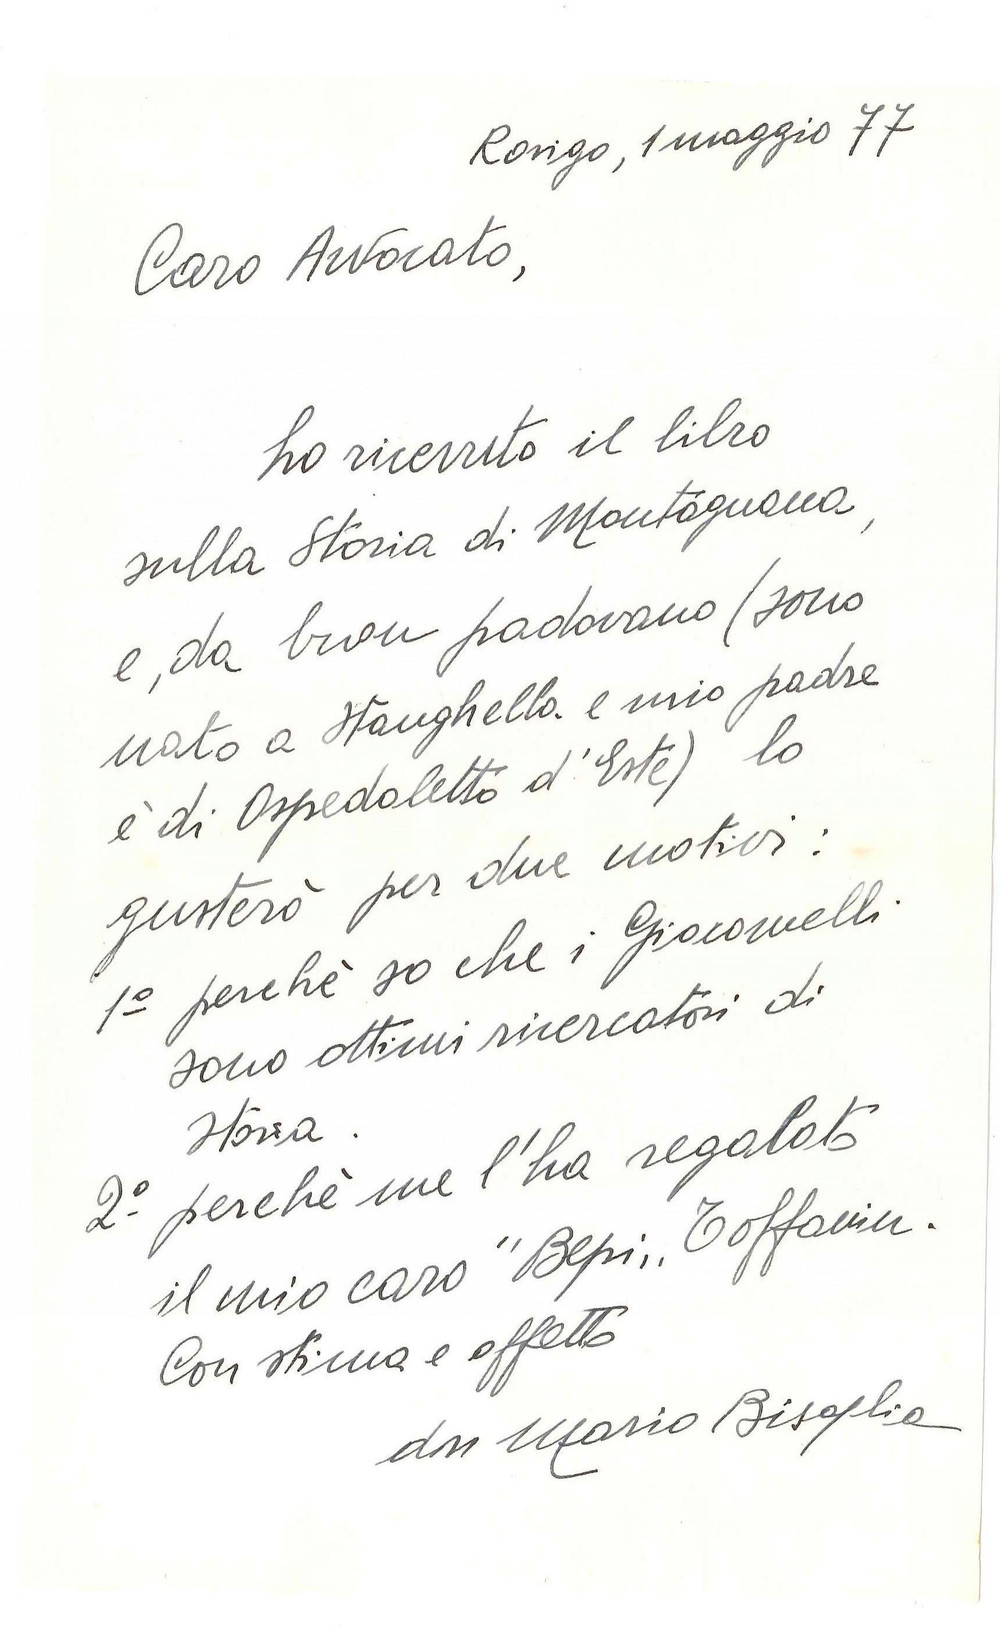 Rovigo, 1 maggio 77
Caro Avvocato,
ho ricevuto il libro
sulla Storia di Montagnana,
e, da buon padovano (sono
nato a Stanghella e mio padre
è di Ospedaletto d'Este) lo
gusterò per due motivi:
1º perchè so che i Giacomelli
sono ottimi ricercatori di
storia.
2º perchè me l'ha regalato
il mio caro "Bepi„ Toffanin.
Con stima e affetto
drn Mario Bisaglia